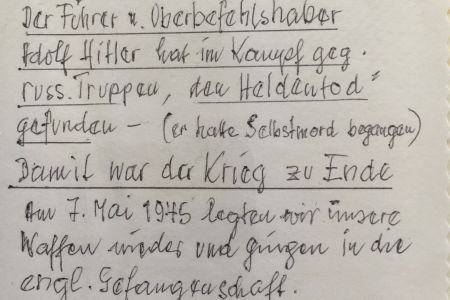 Der Führer u. Oberbefehlshaber
Adolf Hitler hat im Kampf geg.
russ. Truppen, den Heldentod"
gefunden – (er hatte Selbstmord begangen)
Damit war der Krieg zu Ende
Am 7. Mai 1945 legten wir unsere
Waffen nieder und gingen in die
engl. Gefangenschaft.